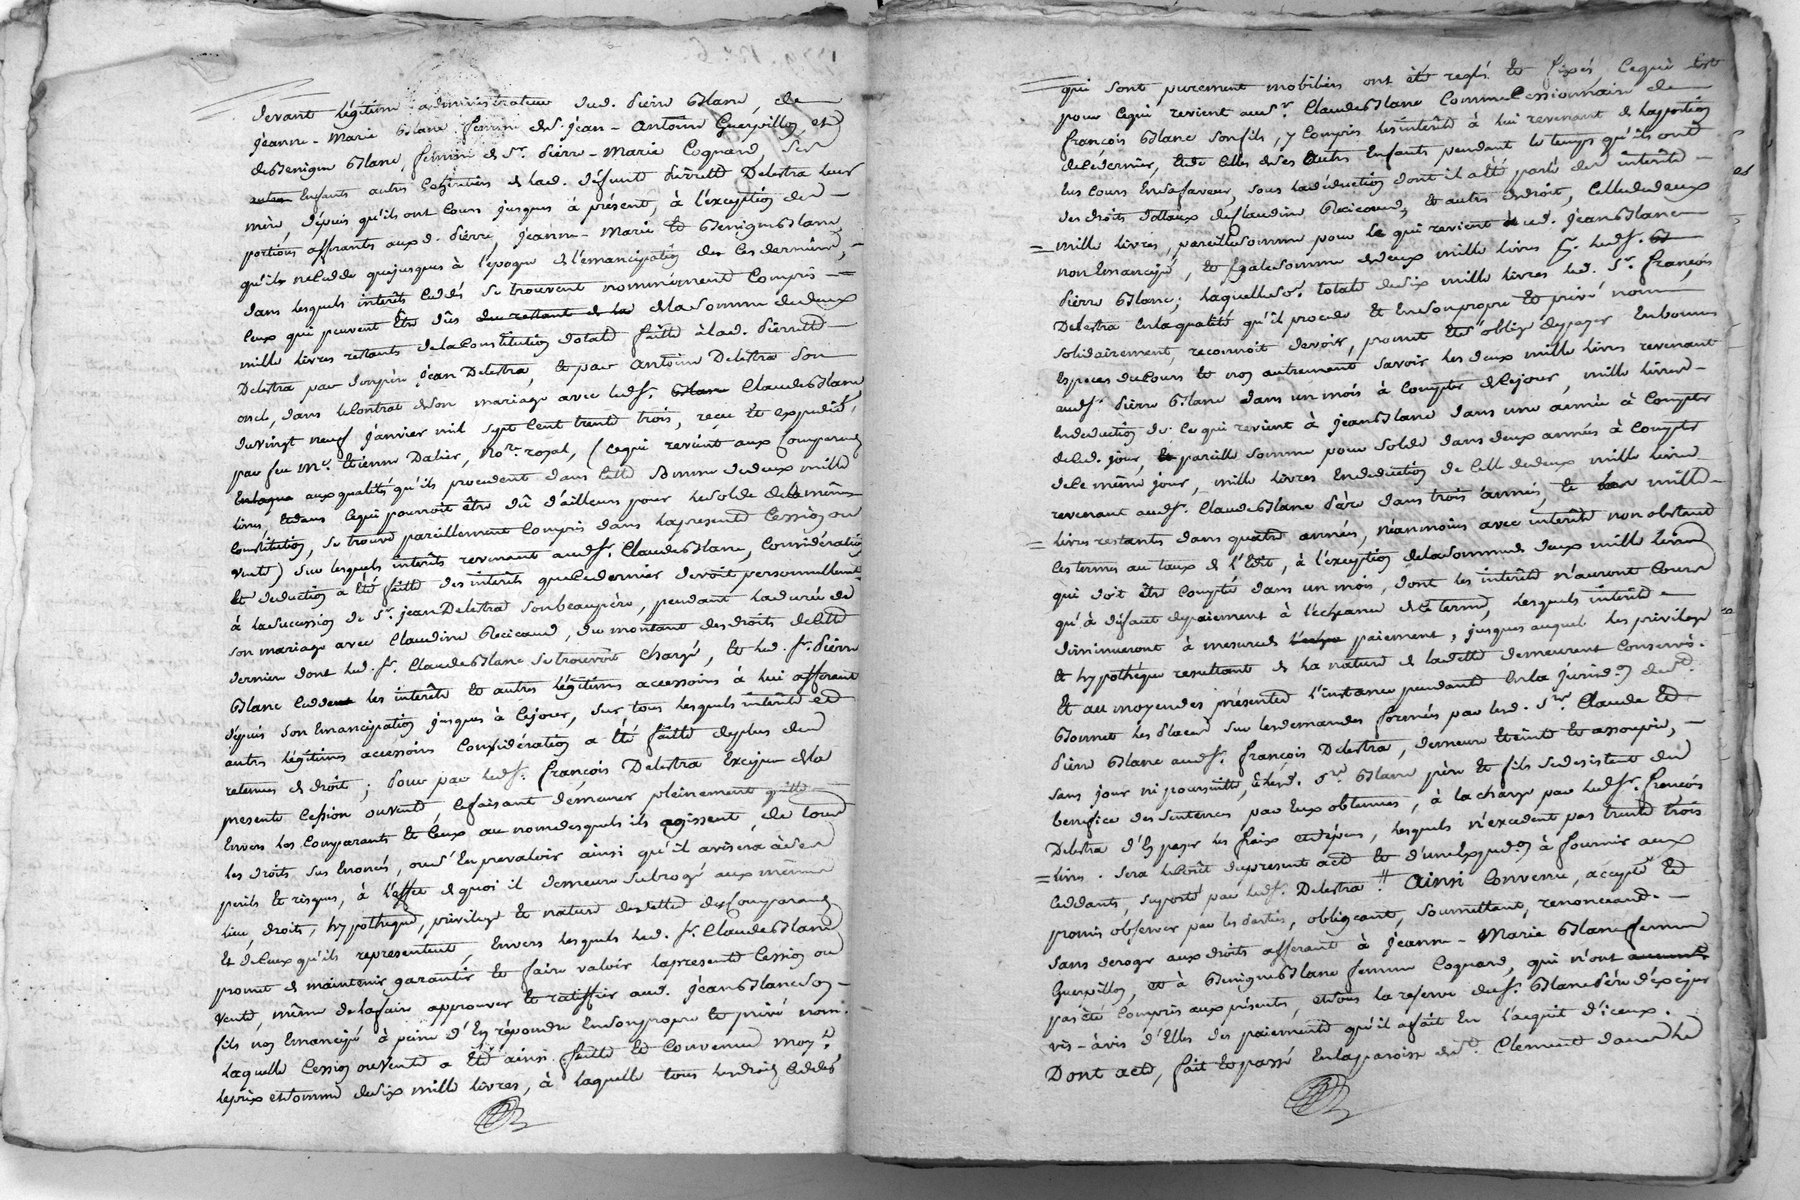 devant légitime administrateur dud. Pierre Blanc, de
Jeanne-Marie Blanc femme de Sr. Jean-Antoine Guerpillon, et
de Benigne Blanc, femme de Sr. Pierre-Marie Cognard, ses
autres Enfants autres Cohéritiers de lad. défunte Pierrette Delestra leur
mère, depuis qu'ils ont cours jusques à présent, à l'exception des
portions afférantes aux d. Pierre, Jeanne-Marie et Benigne Blanc
qu'ils ne cedde que jusques à l'époque de l'émancipation des ces derniers,
dans lesquels intérêts ceddés se trouvent nommément compris
Ceux qui peuvent Être dûs du restant de la de la somme de deux
mille livres restants de la Constitution dotale faitte à lad. Pierrette
Delestra par son père Jean Delestra, et par Antoine Delestra son
oncle, dans le Contrat de son mariage avec led. Sr. Blanc Claude Blanc
du vingt neuf Janvier mil sept Cent trente trois, reçu et expédié,
par feu Me. Etienne Dalier, No.re royal, (ce qui revient aux Comparants
En la qua aux qualités qu'ils procedent dans cette Somme de deux mille
livres, et dans ce qui pourroit être dû d'ailleurs pour le solde de la même
Constitution, se trouve pareillement Compris dans la presente Cession ou
vente) sur lesquels intérêts revenant aud. Sr. Claude Blanc, Considération
et déduction a été faitte des intérêts que ce dernier devoit personnellement
à la succession de Sr. Jean Delestra son beaupère, pendant la durée de
son mariage avec Claudine Recicaud, du montant des droits de cette
derniere dont led. Sr. Claude Blanc se trouvoit chargé, et led. Sr. Pierre
Blanc cedde les intérêts et autres légitimes accessoires à lui afférents
depuis son Emancipation jusques à ce jour, sur tous lesquels intérêts et
autres légitimes accessoires Considération a été faitte de plus des
retenues de droit; Pour par led. Sr. François Delestra Exciper de la
presente Cession ou vente, ce faisant demeurer pleinement quitte
Envers les Comparants et Ceux au nom desquels ils agissent, de tous
les droits sus Enoncés, ou s'en prevaloir ainsi qu'il avisera à ses
perils et risques, à l'effet de quoi il demeure subrogé aux mêmes
lieu, droits, hypotheque, privilege et nature de dette des Comparants
Et de Ceux qu'ils representent, Envers lesquels led. Sr. Claude Blanc
promet de maintenir garantir et faire valoir la presente Cession ou
vente, même de la faire approuver et ratiffier aud. Jean Blanc son
fils non Emancipé à peine d'En répondre En son propre et privé nom.
Laquelle Cession ou Vente a Eté ainsi faitte et Convenue moy.t
le prix et somme de six mille livres, à laquelle tous les droits Ceddés
qui sont purement mobiliers ont été reglés et fixés, ce qui est
pour ce qui revient aud. Sr. Claude Blanc Comme Cessionnaire de
François Blanc son fils, y Compris les intérêts à lui revenant de la portion
de ce dernier, et de celles de ses autres Enfants pendant le temps qu'ils ont
Eus cours En sa faveur, sous la déduction dont il a été parlé des intérêts
des droits dotaux de Claudine Recicaud, et autres de droit, celle de deux
mille livres, pareille somme pour le ce qui revient à ud. Jean Blanc
non Emancipé, et Egale somme de deux mille livres pr. led. Sr. Bl
Pierre Blanc; laquelle so.e totale de six mille livres led. Sr. François
Delestra En la qualité qu'il procede et En son propre et privé nom
solidairement reconnoit devoir, promet et s'oblige de payer En bonnes
Especes du Cours et non autrement savoir les deux mille livres revenant
aud. Sr. Pierre Blanc dans un mois à Compter de ce jour, mille livres
En deduction de ce qui revient à Jean Blanc dans une année à Compter
de ced. jour, et pareille somme pour solde dans deux années à Compter
de ce même jour, mille livres En deduction de celle de deux mille livres
revenant aud. Sr. Claude Blanc Père dans trois années, et les mille
livres restants dans quatre années, néanmoins avec intérêts non obstant
les termes au taux de l'Edit, à l'exception de la somme de deux mille livres
qui doit être Comptée dans un mois, dont les intérêts n'auront Cours
qu'à défaut de paiement à l'échéance de ce terme, lesquels intérêts
diminueront à mesure de l'echea paiement, jusques auquel les privilege
Et hypothèque resultant de la nature de la dette demeurent Conservés.
Et au moyen des présentes l'instance pendante En la jurisd.on de
Bonnet les Places sur les demandes formées par lesd. Srs. Claude et
Pierre Blanc aud. Sr. François Delestra, demeure éteinte et assoupie,
sans jour ni poursuitte, et lesd. Srs. Blanc père et fils se desistent du
benefice des sentences par Eux obtenues, à la charge par led. Sr. François
Delestra d'En payer les fraix et dépens, lesquels n'excedent pas trente trois
livres. Sera le Coût du present acte et d'une Exped.on à fournir aux
Ceddants, suporté par led. Sr. Delestra. Ainsi Convenu, accepté et
promis observer par les Parties, obligeant, soumettant, renonceant.
Sans deroger aux droits afferant à Jeanne-Marie Blanc femme
Guerpillon, et à Benigne Blanc femme Cognard, qui n'ont
pas été Compris aux présentes, et sous la reserve dud. Sr. Blanc Père d'exciper
vis-à-vis d'Elles des paiements qu'il a fait En l'acquit d'icelles.
Dont acte, fait et passé En la paroisse de St. Clement dans le